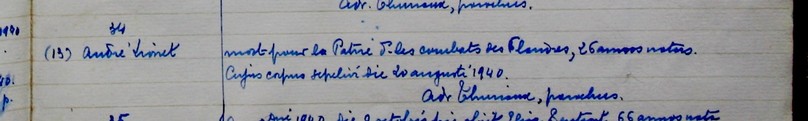 Adr. Thuriaux, parochus.
1940
34
(13) André Lionet mort pour la Patrie d. les combats des Flandres, 26 annos natus.
Cujus corpus sepelivi die 20 augusti 1940.
40.
p.
Adr Thuriaux, parochus.
35
1940, die 2 octobris 66 annos nata